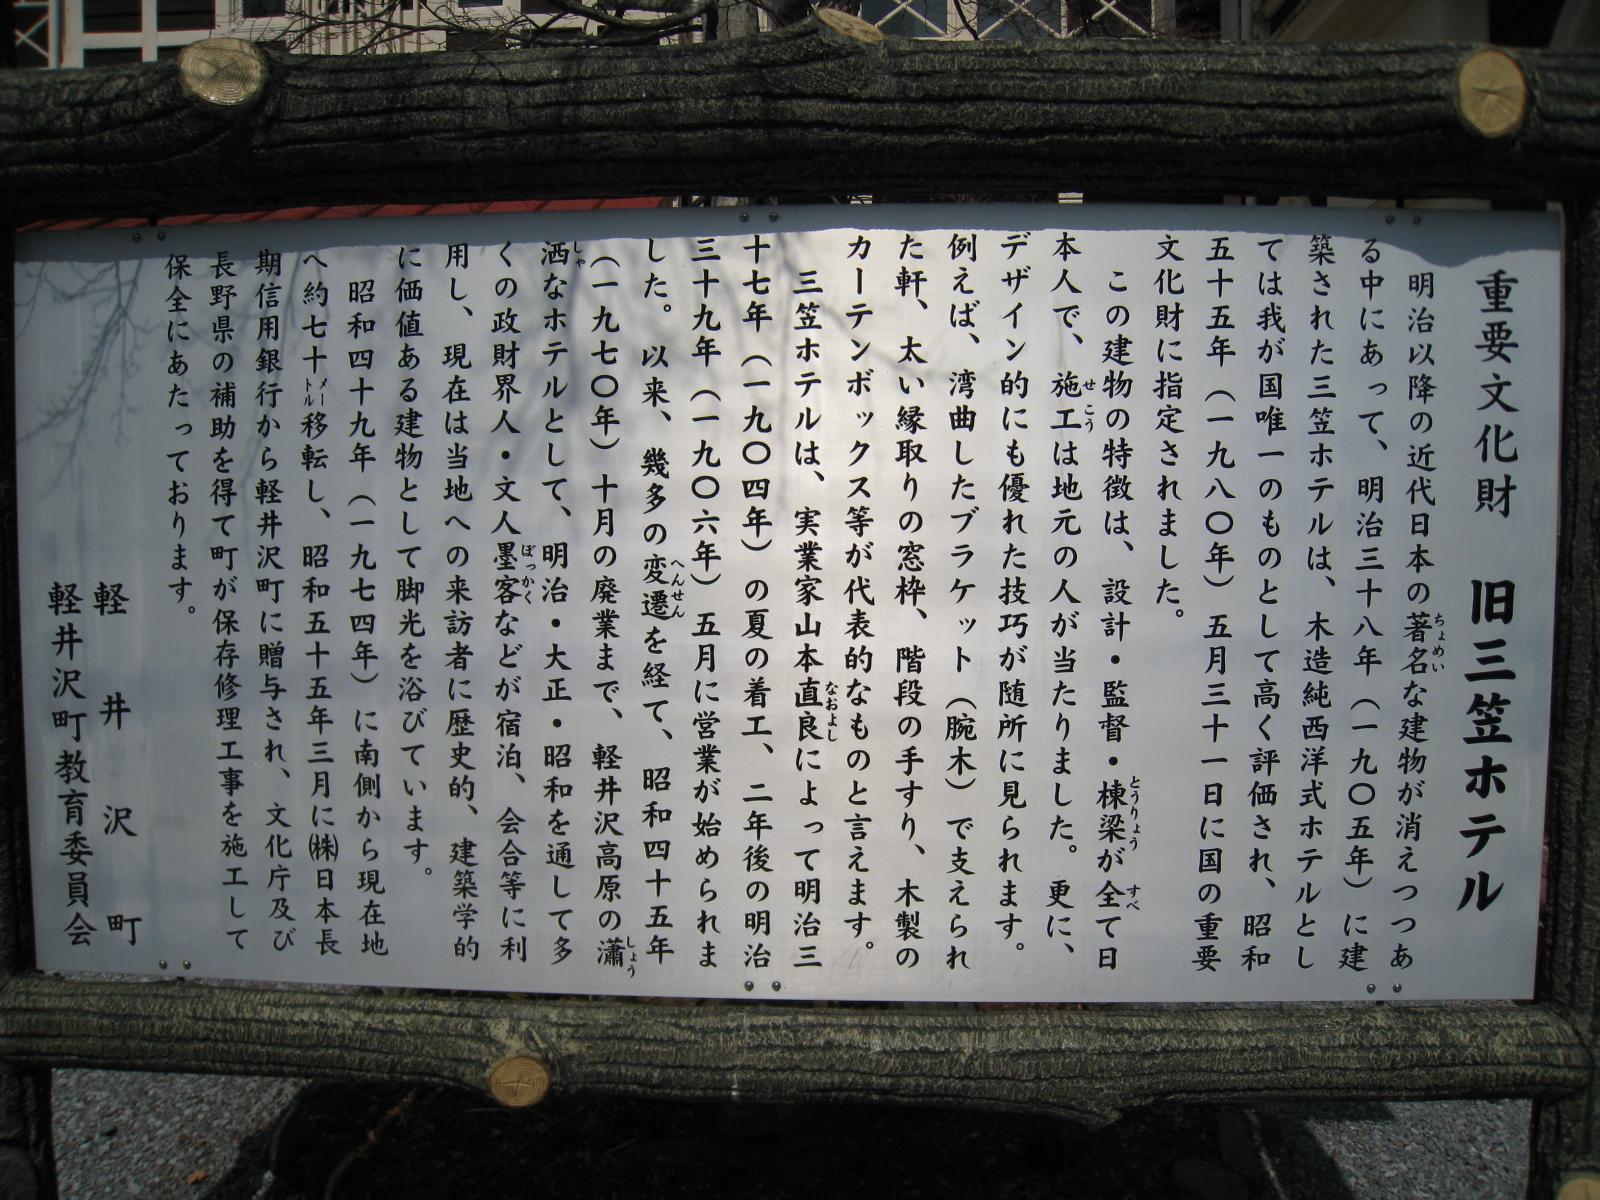 重要文化財　旧三笠ホテル
明治以降の近代日本の著名な建物が消えつつあ
る中にあって、明治三十八年（一九〇五年）に建
築された三笠ホテルは、木造純西洋式ホテルとし
ては我が国唯一のものとして高く評価され、昭和
五十五年（一九八〇年）五月三十一日に国の重要
文化財に指定されました。
この建物の特徴は、設計・監督・棟梁が全て日
本人で、施工は地元の人が当たりました。更に、
デザイン的にも優れた技巧が随所に見られます。
例えば、湾曲したブラケット（腕木）で支えられ
た軒、太い縁取りの窓枠、階段の手すり、木製の
カーテンボックス等が代表的なものと言えます。
三笠ホテルは、実業家山本直良によって明治三
十七年（一九〇四年）の夏の着工、二年後の明治
三十九年（一九〇六年）五月に営業が始められま
した。以来、幾多の変遷を経て、昭和四十五年
（一九七〇年）十月の廃業まで、軽井沢高原の瀟
洒なホテルとして、明治・大正・昭和を通して多
くの政財界人・文人墨客などが宿泊、会合等に利
用し、現在は当地への来訪者に歴史的、建築学的
に価値ある建物として脚光を浴びています。
昭和四十九年（一九七四年）に南側から現在地
へ約七十メートル移転し、昭和五十五年三月に㈱日本長
期信用銀行から軽井沢町に贈与され、文化庁及び
長野県の補助を得て町が保存修理工事を施工して
保全にあたっております。
軽井沢町
軽井沢町教育委員会